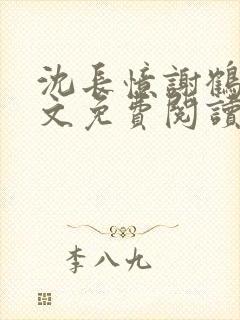 沈長憶謝鶴
文免費閱讀
李八九